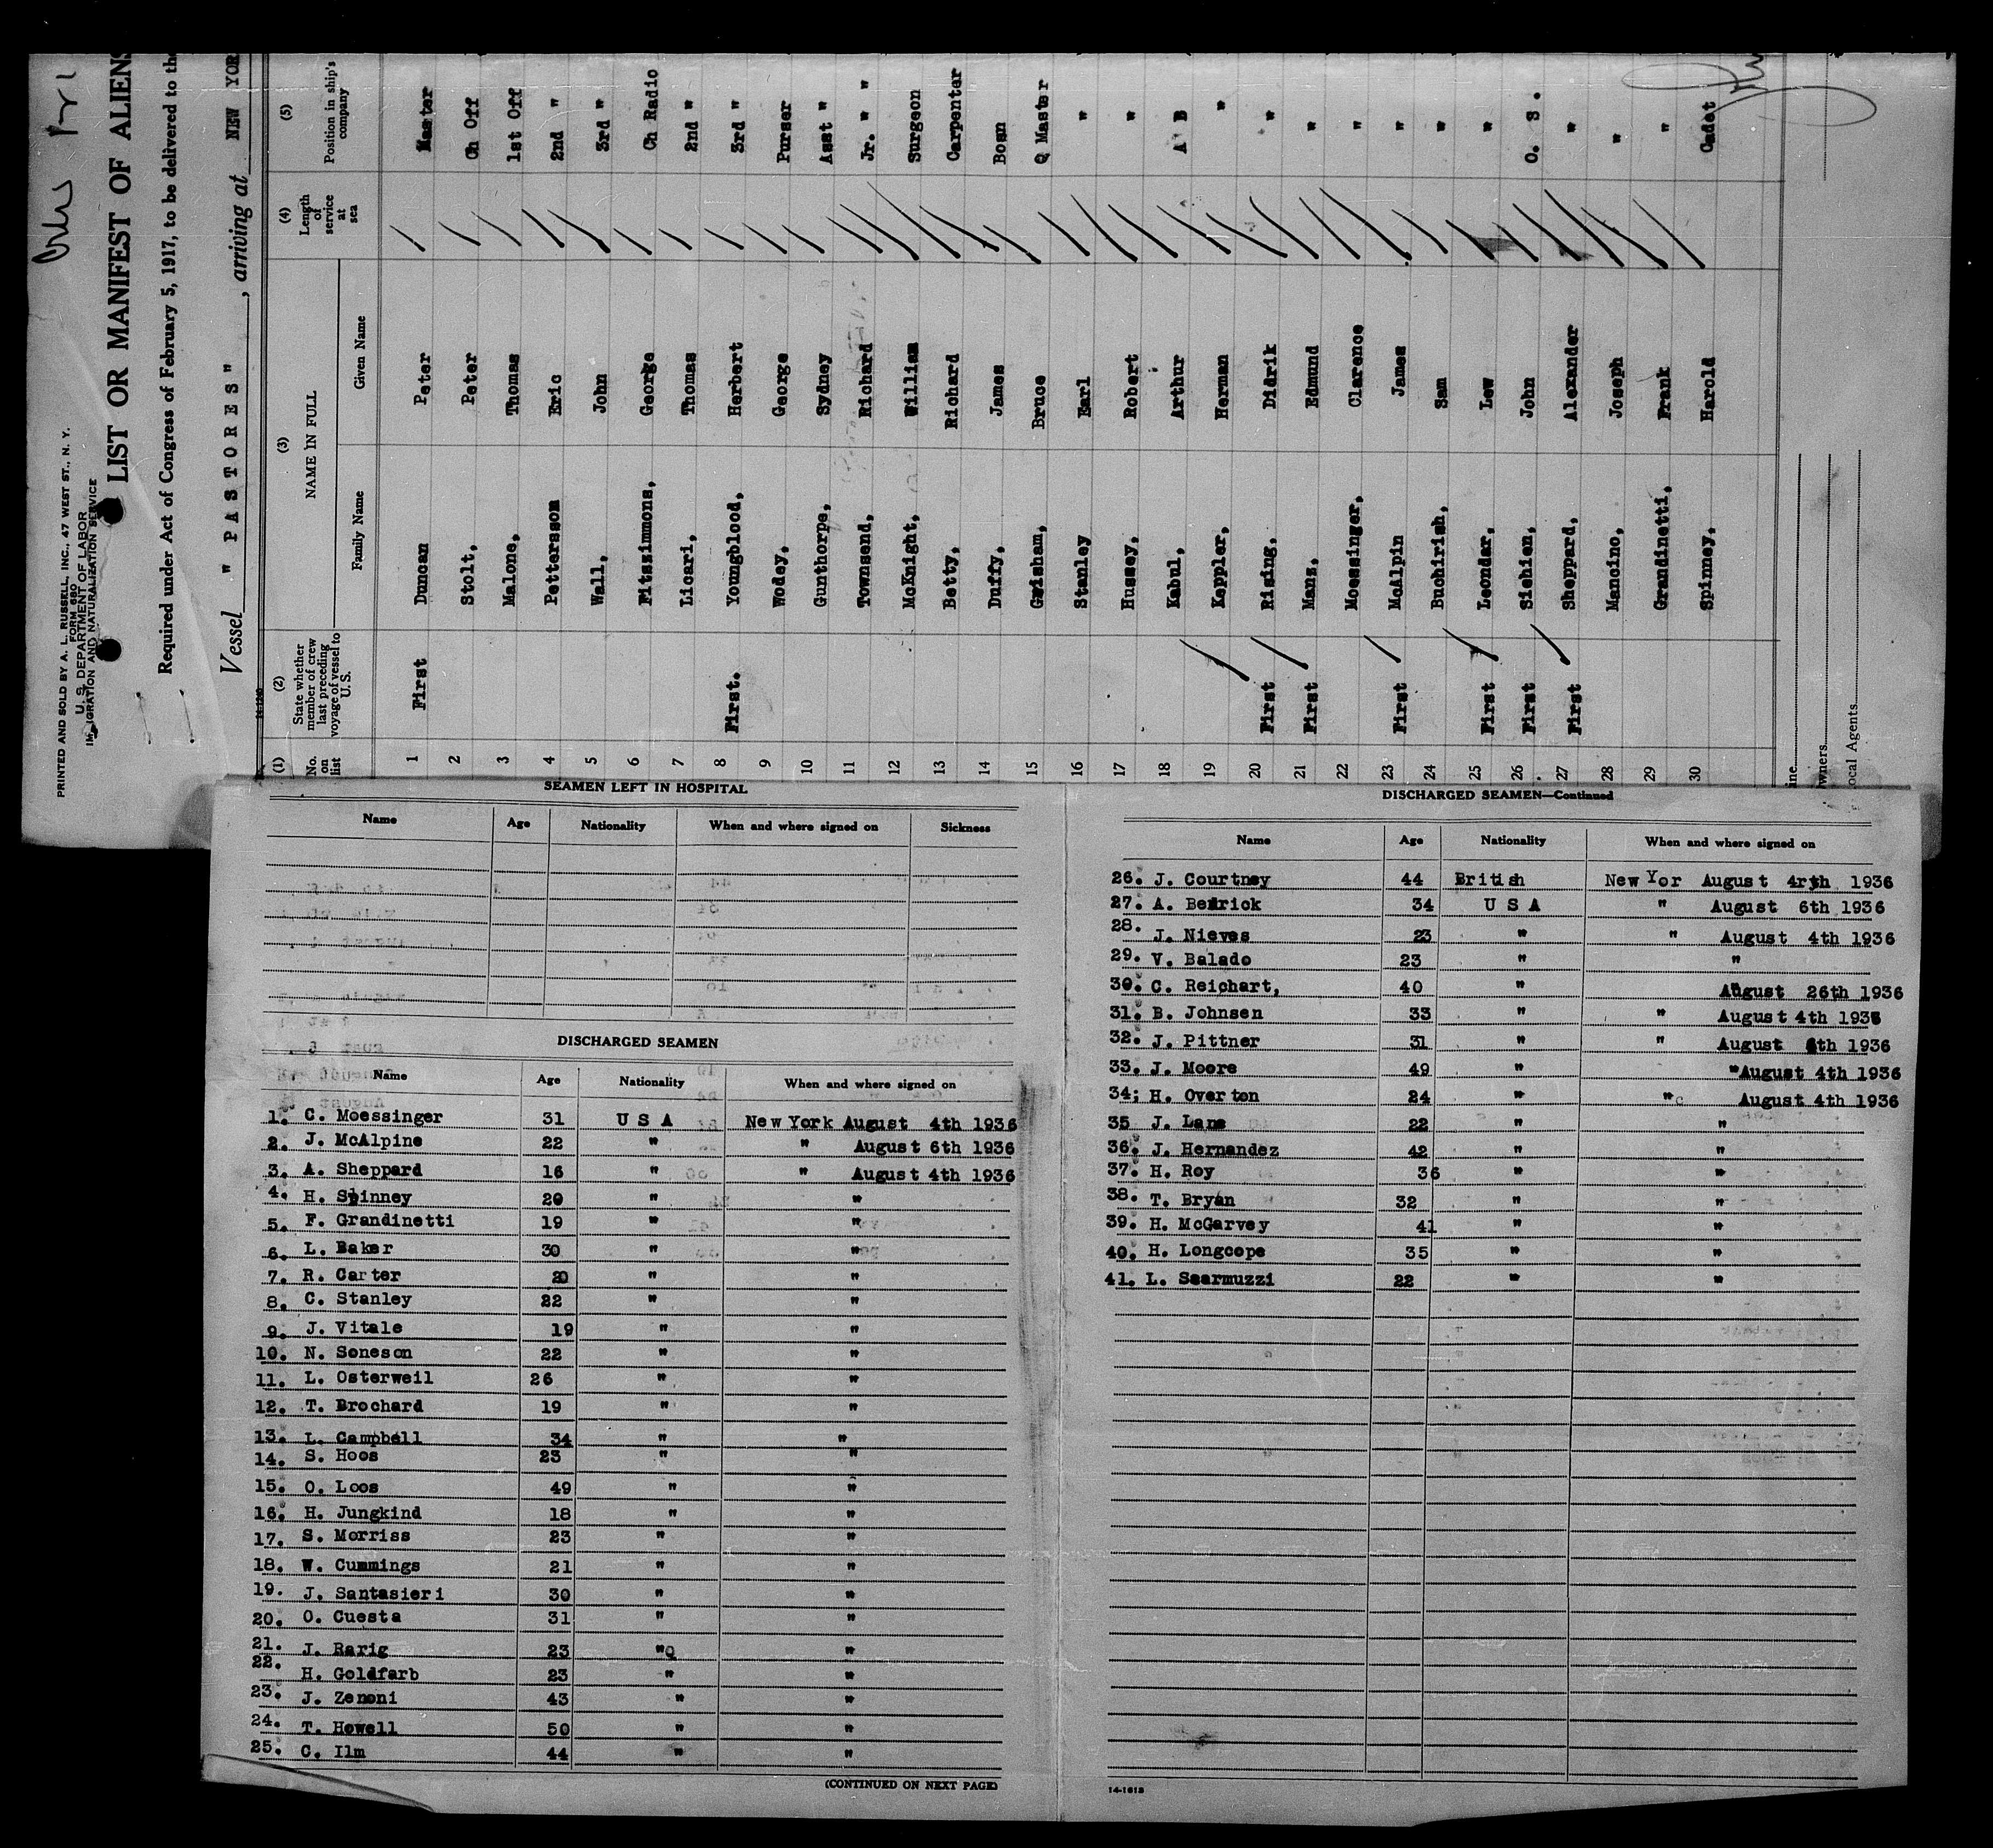 PRINTED AND SOLD BY A. L. RUSSELL, INC., 47 WEST ST., N. Y.
FORM 680
U. S. DEPARTMENT OF LABOR
IMMIGRATION AND NATURALIZATION SERVICE
LIST OR MANIFEST OF ALIENS
Required under Act of Congress of February 5, 1917, to be delivered to the
Vessel " PASTORES" , arriving at NEW YOR
(1) (2) (3) (4) (5)
No. on list State whether member of crew last preceding voyage of vessel to U. S. NAME IN FULL Length of service at sea Position in ship's company
Family Name Given Name
1 First Duncan Peter Master
2 Stolt, Peter Ch Off
3 Malone, Thomas 1st Off
4 Petterssom Eric 2nd "
5 Wall, John 3rd "
6 Fitssimmons, George Ch Radio
7 Licari, Thomas 2nd "
8 First. Youngblood, Herbert 3rd "
9 Wodey, George Purser
10 Gunthorpe, Sydney Asst "
11 Townsend, Richard Jr. " "
12 McKnight, William Surgeon
13 Betty, Richard Carpenter
14 Duffy, James Bosn
15 Grisham, Bruce Q Master
16 Stanley Earl "
17 Hussey, Robert "
18 Kabul, Arthur A B
19 Keppler, Herman "
20 First Rising, Didrik "
21 First Mans, Edmund "
22 Moessinger, Clarence "
23 First McAlpin James "
24 Buchirish, Sam "
25 First Leondar, Lew "
26 First Siehien, John O. S.
27 First Sheppard, Alexander "
28 Mancino, Joseph "
29 Grandinetti, Frank "
30 Spinney, Harold Cadet
ine
wners
ocal Agents
SEAMEN LEFT IN HOSPITAL
Name Age Nationality When and where signed on Sickness
DISCHARGED SEAMEN
Name Age Nationality When and where signed on
1. C. Moessinger 31 U S A New York August 4th 1936
2. J. McAlpine 22 " " August 6th 1936
3. A. Sheppard 16 " " August 4th 1936
4. H. Spinney 20 " "
5. F. Grandinetti 19 " "
6. L. Baker 30 " "
7. R. Carter 20 " "
8. C. Stanley 22 " "
9. J. Vitale 19 " "
10. N. Soneson 22 " "
11. L. Osterweil 26 " "
12. T. Brochard 19 " "
13. L. Campbell 34 " "
14. S. Hoos 23 " "
15. O. Loos 49 " "
16. H. Jungkind 18 " "
17. S. Morriss 23 " "
18. W. Cummings 21 " "
19. J. Santasieri 30 " "
20. O. Cuesta 31 " "
21. J. Rarig 23 " "
22. H. Goldfarb 23 " "
23. J. Zenoni 43 " "
24. T. Howell 50 " "
25. C. Ilm 44 " "
(CONTINUED ON NEXT PAGE)
DISCHARGED SEAMEN—Continued
Name Age Nationality When and where signed on
26. J. Courtney 44 British New Yor August 4rth 1936
27. A. Bedrick 34 U S A " August 6th 1936
28. J. Nieves 23 " " August 4th 1936
29. V. Balado 23 " "
30. C. Reichart, 40 " August 26th 1936
31. B. Johnsen 33 " " August 4th 1936
32. J. Pittner 31 " " August 6th 1936
33. J. Moore 49 " " August 4th 1936
34; H. Overton 24 " " August 4th 1936
35 J. Lane 22 " "
36. J. Hernandez 42 " "
37. H. Roy 36 " "
38. T. Bryan 32 " "
39. H. McGarvey 41 " "
40. H. Longcope 35 " "
41. L. Saarmuzzi 22 " "
14-1618